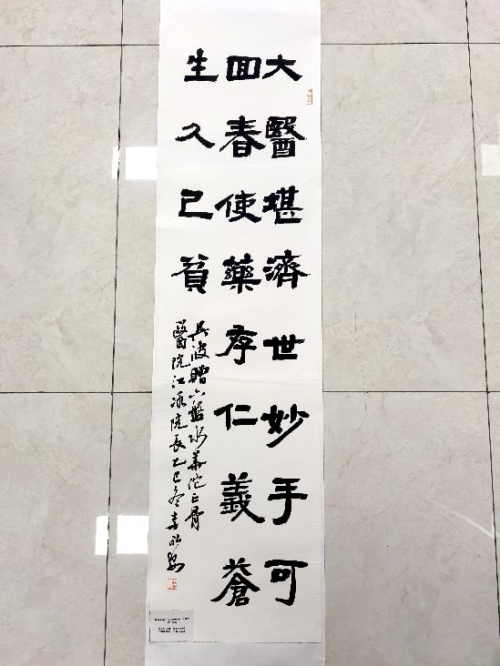 大醫堪濟世妙手可
回春使藥存仁義蒼
生久已貧
吴波贈六盤水華佗正骨
醫院江院長乙巳冬